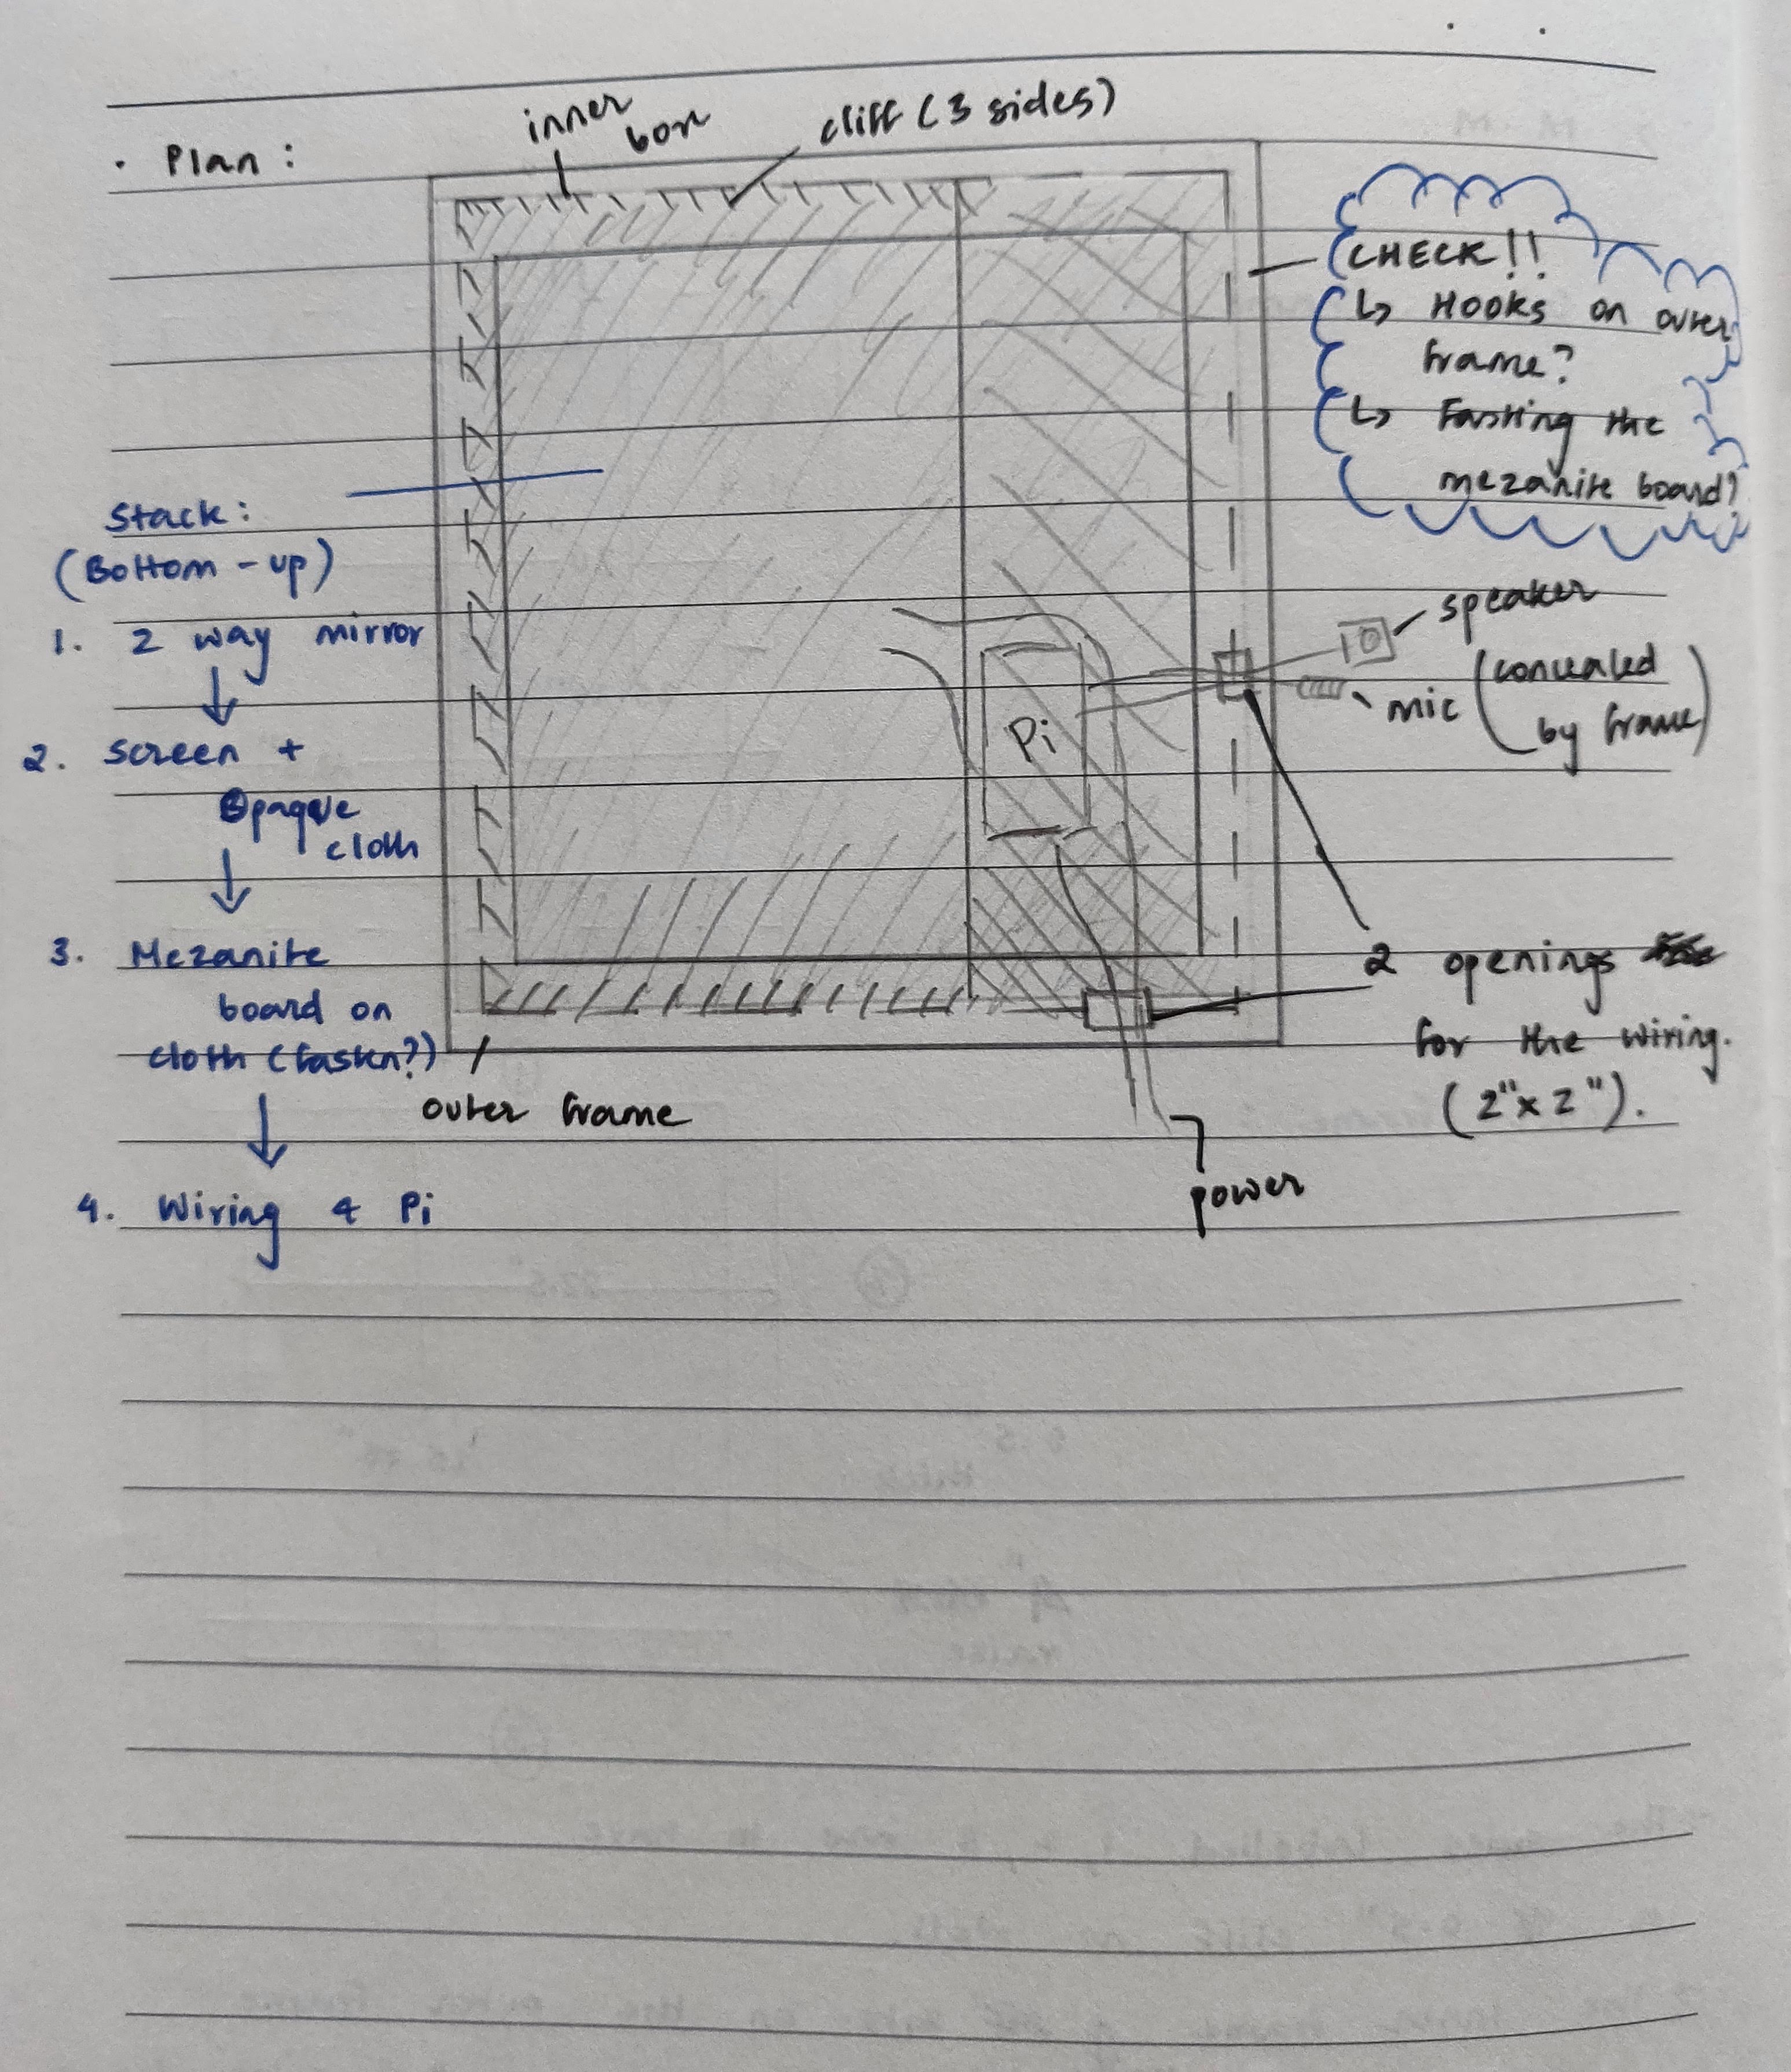 inner
box
cliff (3 sides)
. Plan :
CHECK!!
↳ Hooks on outer
frame?
↳ Fasting the
mezanite board?
Stack:
(Bottom - up)
1. 2 way mirror
↓
2. Screen +
Opaque
cloth
↓
3. Mezanite
board on
cloth (fasten?)
↓
4. Wiring & Pi
Pi
speaker
mic (concealed
by frame)
2 openings
for the wiring.
(2"x2").
outer frame
power